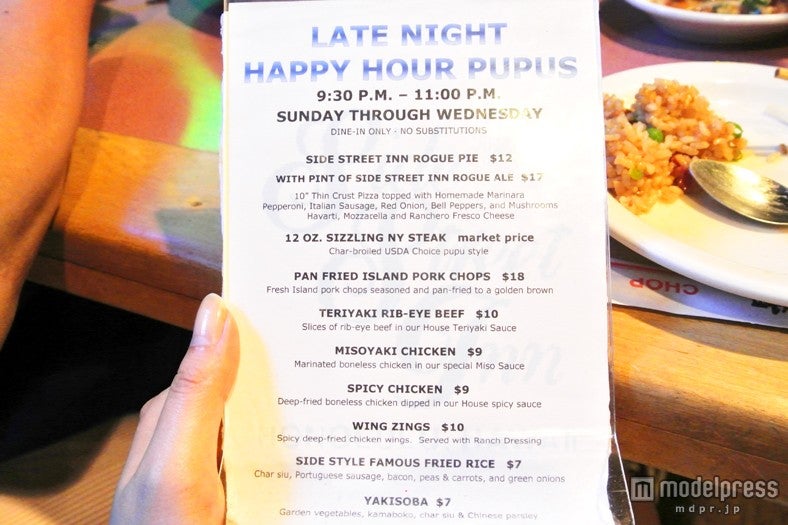 LATE NIGHT
HAPPY HOUR PUPUS
9:30 P.M. – 11:00 P.M.
SUNDAY THROUGH WEDNESDAY
DINE-IN ONLY - NO SUBSTITUTIONS
SIDE STREET INN ROGUE PIE $12
WITH PINT OF SIDE STREET INN ROGUE ALE $17
10" Thin Crust Pizza topped with Homemade Marinara
Pepperoni, Italian Sausage, Red Onion, Bell Peppers, and Mushrooms
Havarti, Mozzarella and Ranchero Fresco Cheese
12 OZ. SIZZLING NY STEAK market price
Char-broiled USDA Choice pupu style
PAN FRIED ISLAND PORK CHOPS $18
Fresh Island pork chops seasoned and pan-fried to a golden brown
TERIYAKI RIB-EYE BEEF $10
Slices of rib-eye beef in our House Teriyaki Sauce
MISOYAKI CHICKEN $9
Marinated boneless chicken in our special Miso Sauce
SPICY CHICKEN $9
Deep-fried boneless chicken dipped in our House spicy sauce
WING ZINGS $10
Spicy deep-fried chicken wings. Served with Ranch Dressing
SIDE STYLE FAMOUS FRIED RICE $7
Char siu, Portuguese sausage, bacon, peas & carrots, and green onions
YAKISOBA $7
Garden vegetables, kamaboko, char siu & Chinese parsley
CHOP
modelpress
mdpr.jp